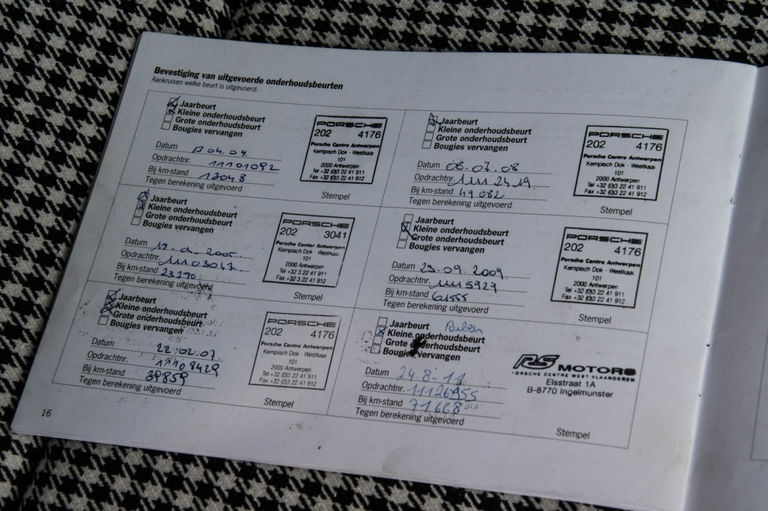 Bevestiging van uitgevoerde onderhoudsbeurten
Aankruisen welke beurt is uitgevoerd.
Jaarbeurt
Kleine onderhoudsbeurt
Grote onderhoudsbeurt
Bougies vervangen
Datum
Opdrachtnr. 11101092
Bij km-stand 13048
Tegen berekening uitgevoerd
PORSCHE
202 4176
Porsche Centre Antwerpen
Kempisch Dok - Westkaai
101
2000 Antwerpen
Tel +32 (0)3 22 41 911
Fax +32 (0)3 22 41 912
Stempel
Jaarbeurt
Kleine onderhoudsbeurt
Grote onderhoudsbeurt
Bougies vervangen
Datum 06.07.08
Opdrachtnr.
Bij km-stand 49082
Tegen berekening uitgevoerd
PORSCHE
202 4176
Porsche Centre Antwerpen
Kempisch Dok - Westkaai
101
2000 Antwerpen
Tel +32 (0)3 22 41 911
Fax +32 (0)3 22 41 912
Stempel
Jaarbeurt
Kleine onderhoudsbeurt
Grote onderhoudsbeurt
Bougies vervangen
Datum
Opdrachtnr.
Bij km-stand 23270
Tegen berekening uitgevoerd
PORSCHE
202 3041
Porsche Center Antwerpen
Kempisch Dok - Westkaai
101
2000 Antwerpen
Tel +32 3 22 41 911
Fax +32 3 22 41 912
Stempel
Jaarbeurt
Kleine onderhoudsbeurt
Grote onderhoudsbeurt
Bougies vervangen
Datum 23.09.2009
Opdrachtnr.
Bij km-stand 61555
Tegen berekening uitgevoerd
PORSCHE
202 4176
Porsche Centre Antwerpen
Kempisch Dok - Westkaai
101
2000 Antwerpen
Tel +32 (0)3 22 41 911
Fax +32 (0)3 22 41 912
Stempel
Jaarbeurt
Kleine onderhoudsbeurt
Grote onderhoudsbeurt
Bougies vervangen
Datum 22.02.07
Opdrachtnr. 11109429
Bij km-stand 39859
Tegen berekening uitgevoerd
PORSCHE
202 4176
Porsche Centre Antwerpen
Kempisch Dok - Westkaai
101
2000 Antwerpen
Tel +32 (0)3 22 41 911
Fax +32 (0)3 22 41 912
Stempel
Jaarbeurt Ruben
Kleine onderhoudsbeurt
Grote onderhoudsbeurt
Bougies vervangen
Datum 24.8.11
Opdrachtnr. 11126955
Bij km-stand 71668
Tegen berekening uitgevoerd
RS MOTORS
PORSCHE CENTRE WEST-VLAANDEREN
Elsstraat 1A
B-8770 Ingelmunster
Stempel
16